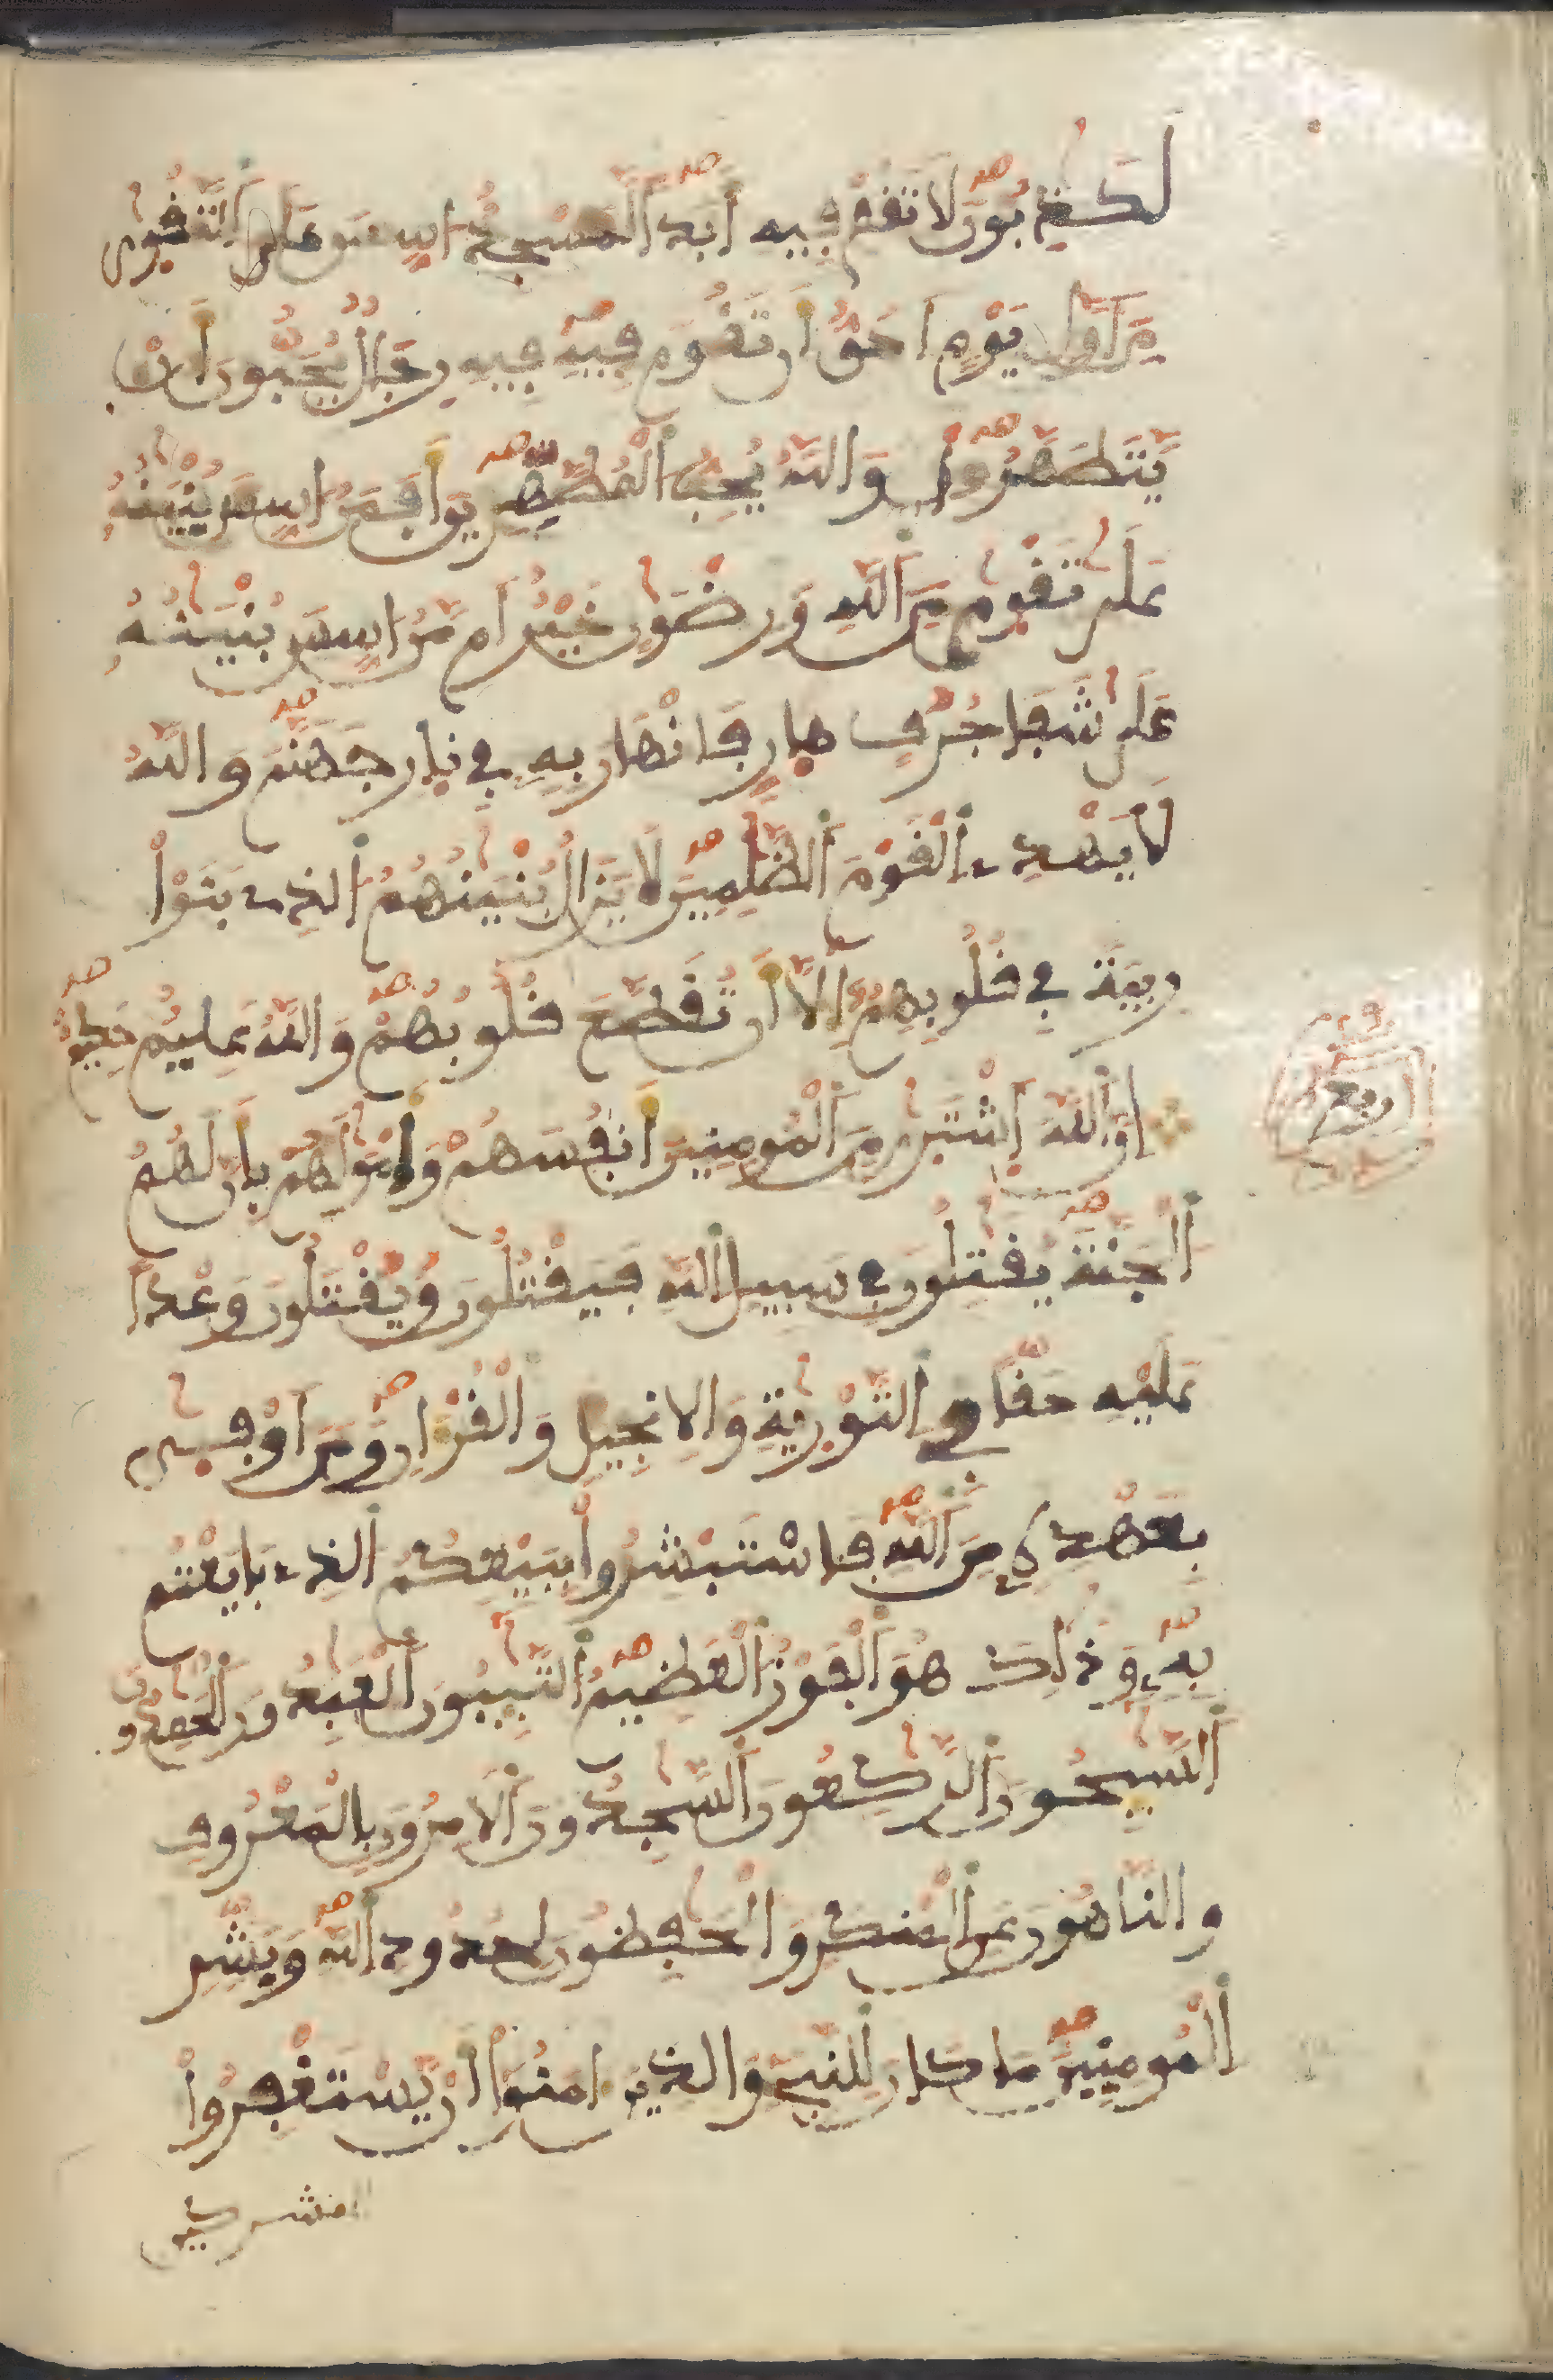 لَكَٰذِبُونَ لَا تَقُمْ فِيهِ أَبَدًا لَّمَسْجِدٌ اسِّسَ عَلَى اَلتَّقْوٜىٰ
مِنَ اَوَّلِ يَوْمٍ اَحَقُّ أَن تَقُومَ فِيهِ فِيهِ رِجَالٌ يُحِبُّونَ أَنْ
يَّتَطَهَّرُوا۟ وَاللَّهُ يُحِبُّ اُلْمُطَّهِّرِينَ أَفَمَنُ اسِّسَ بُنْيَٰنُهُ
عَلَىٰ تَقْوٜىٰ مِنَ اَللَّهِ وَرِضْوَٰنٍ خَيْرٌ اَم مَّنُ اسِّسَ بُنْيَٰنُهُ
عَلَىٰ شَفَا جُرُفٍ هٜارٍ فَانْهَارَ بِهِ فِي نٜارِ جَهَنَّمَ وَاللَّهُ
لَا يَهْدِے اِلْقَوْمَ اَلظَّٰلِمِينَ لَا يَزَالُ بُنْيَٰنُهُمُ اُلذِے بَنَوْا۟
رِيبَةً فِي قُلُوبِهِمُۥٓ إِلَّآ أَن تُقَطَّعَ قُلُوبُهُمْ وَاللَّهُ عَلِيمٌ حَكِيمٌ
إِنَّ اَللَّهَ اَشْتَرٜىٰ مِنَ اَلْمُومِنِينَ أَنفُسَهُمْ وَأَمْوَٰلَهُم بِأَنَّ لَهُمُ
اُلْجَنَّةَ يُقَٰتِلُونَ فِي سَبِيلِ اِللَّهِ فَيَقْتُلُونَ وَيُقْتَلُونَ وَعْدًا
عَلَيْهِ حَقّٗا فِي اِلتَّوْرٜىٰةِ وَالِانجِيلِ وَالْقُرْءَانِ وَمَنَ اَوْفٜىٰ
بِعَهْدِهِۦ مِنَ اَللَّهِ فَاسْتَبْشِرُوا۟ بِبَيْعِكُمُ اُلذِے بَايَعْتُم
بِهِۦ وَذَٰلِكَ هُوَ اَلْفَوْزُ اُلْعَظِيمُ اُلتَّٰٓئِبُونَ اَلْعَٰبِدُونَ اَلْحَٰمِدُونَ
اَلسَّٰٓئِحُونَ اَلرَّٰكِعُونَ اَلسَّٰجِدُونَ اَلَامِرُونَ بِالْمَعْرُوفِ
وَالنَّاهُونَ عَنِ اِلْمُنكَرِ وَالْحَٰفِظُونَ لِحُدُودِ اِللَّهِ وَبَشِّرِ
اِلْمُومِنِينَ مَا كَانَ لِلنَّبِےٓءِ وَالذِينَ ءَامَنُوٓا۟ أَنْ يَّسْتَغْفِرُوا۟
للمشركين
ربع